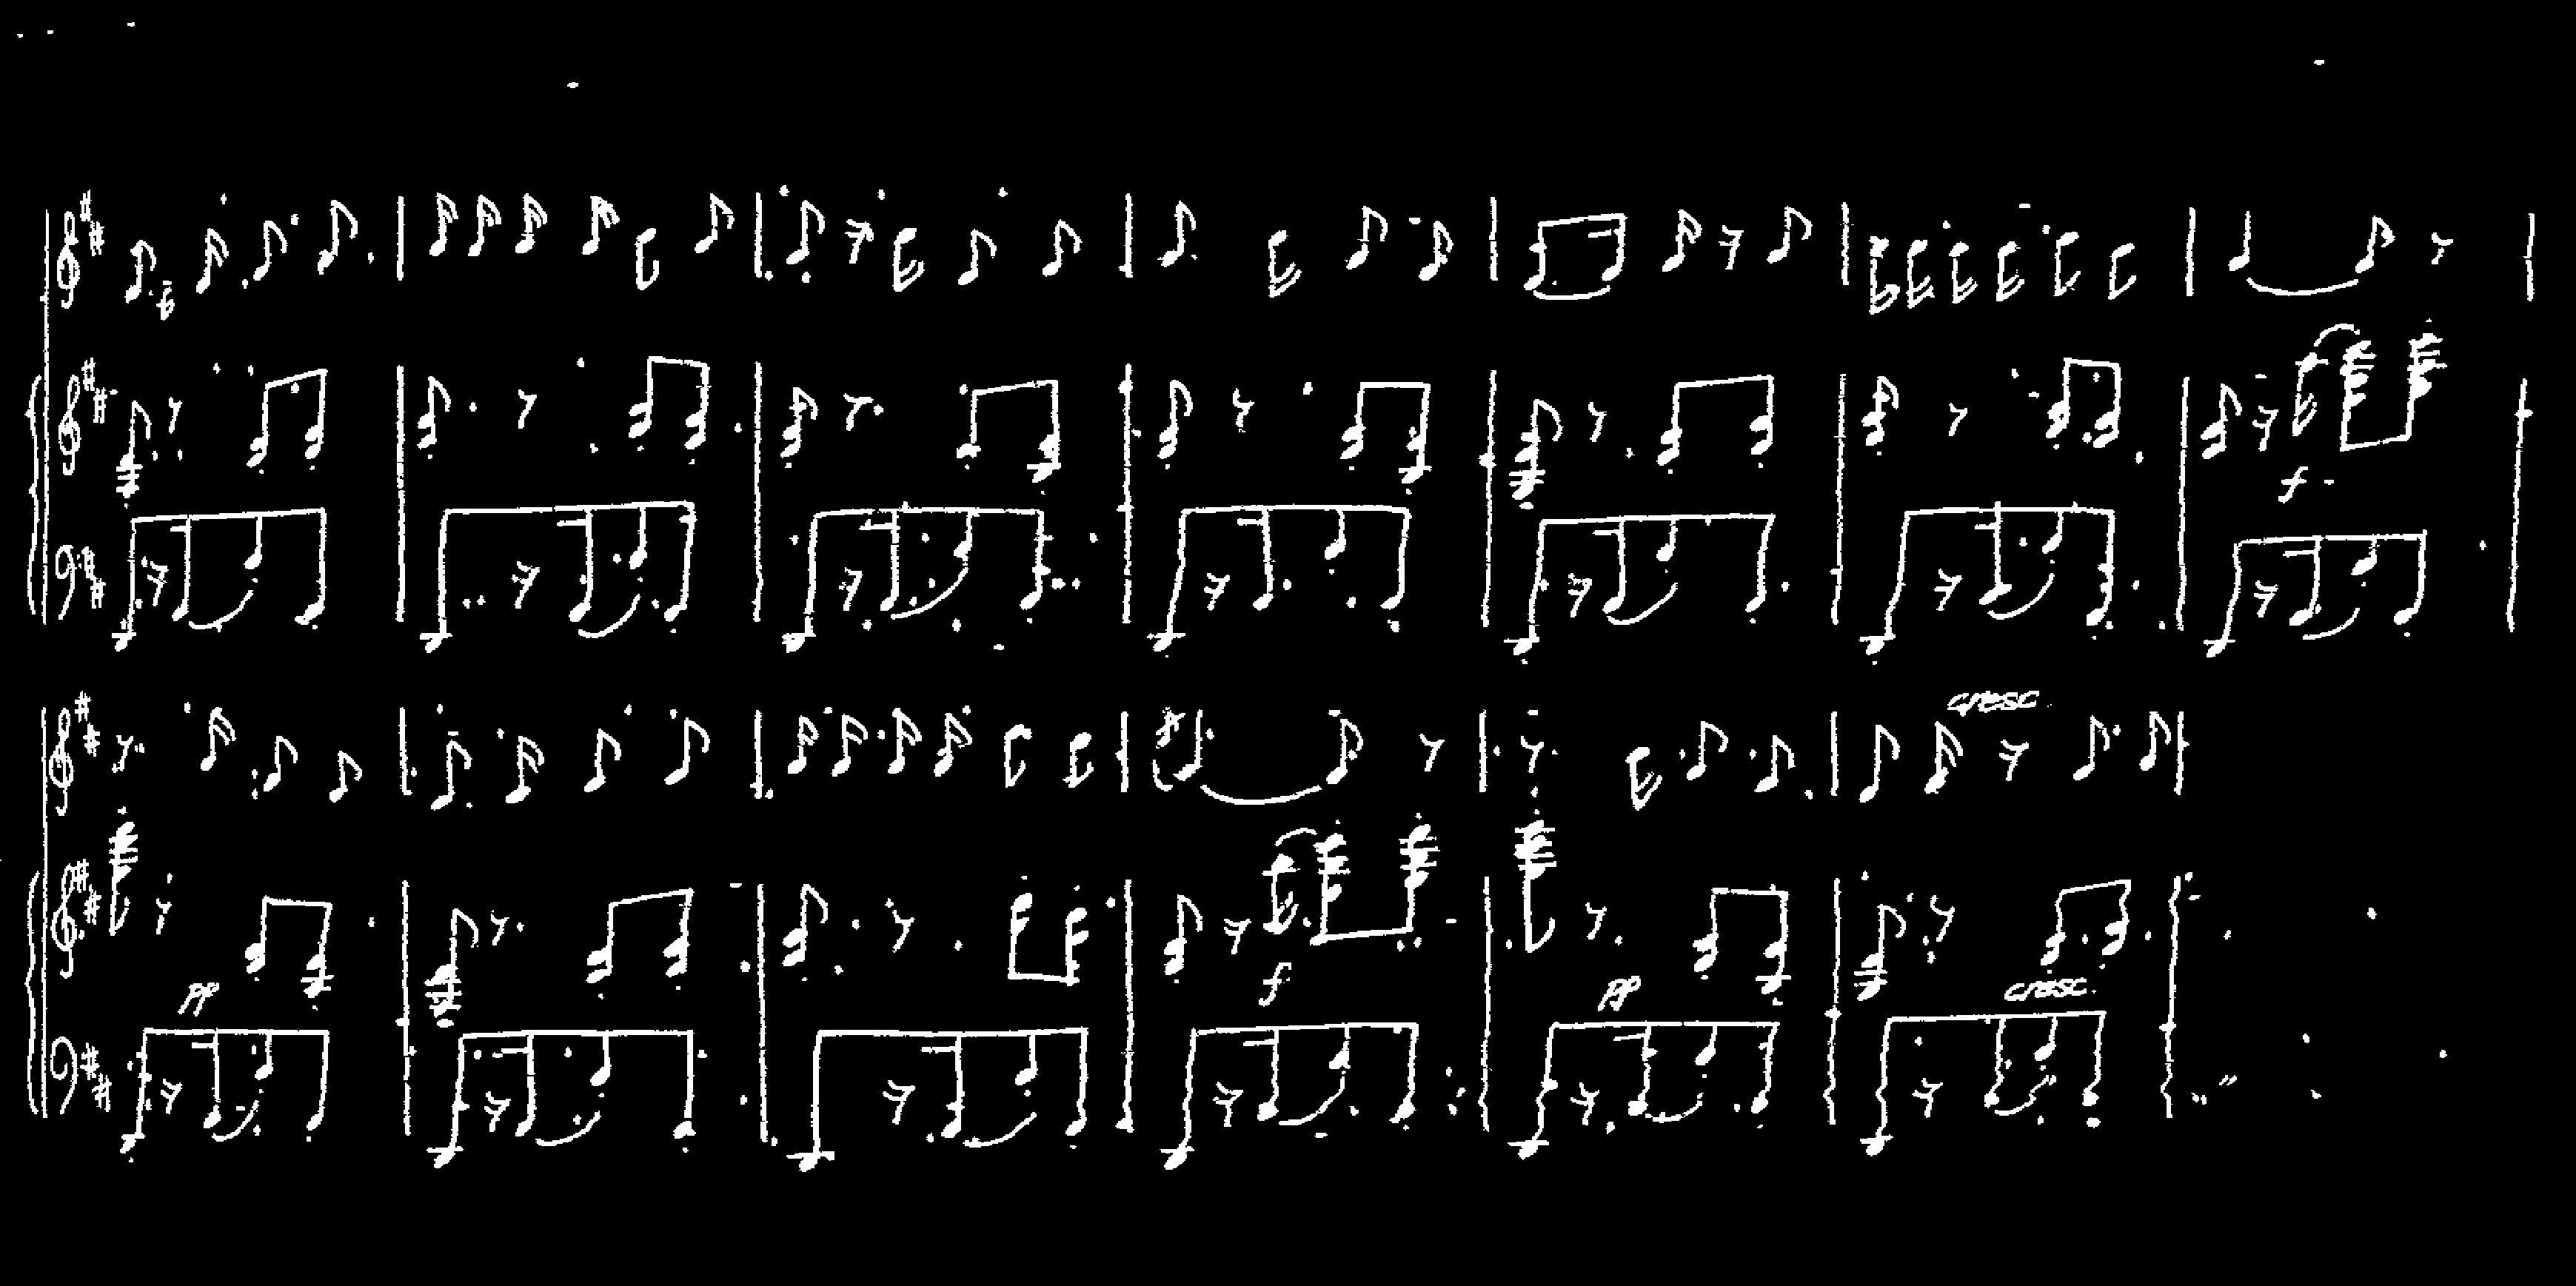 f
cresc
pp
f
pp
cresc.